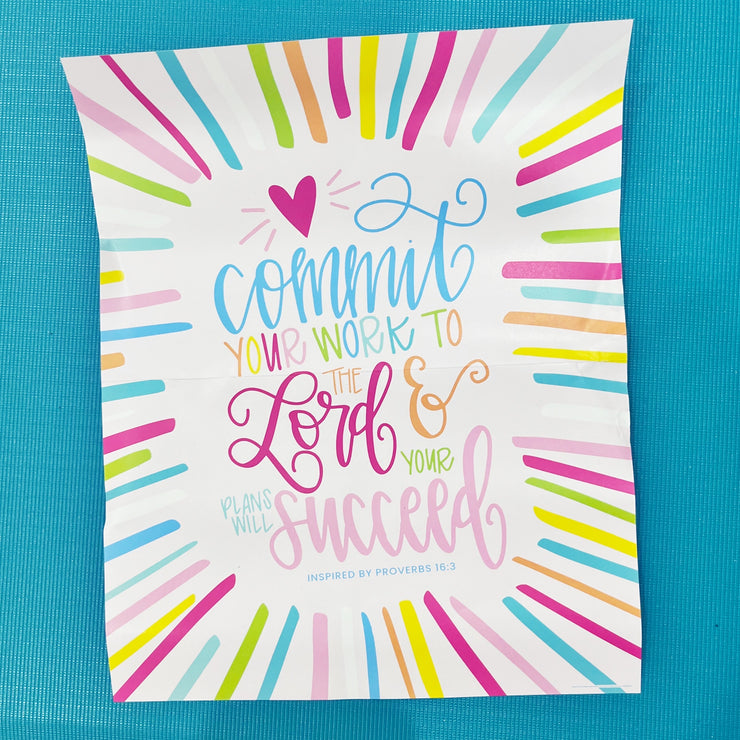 commit
YOUR WORK TO
THE
Lord &
YOUR
PLANS
WILL succeed
INSPIRED BY PROVERBS 16:3